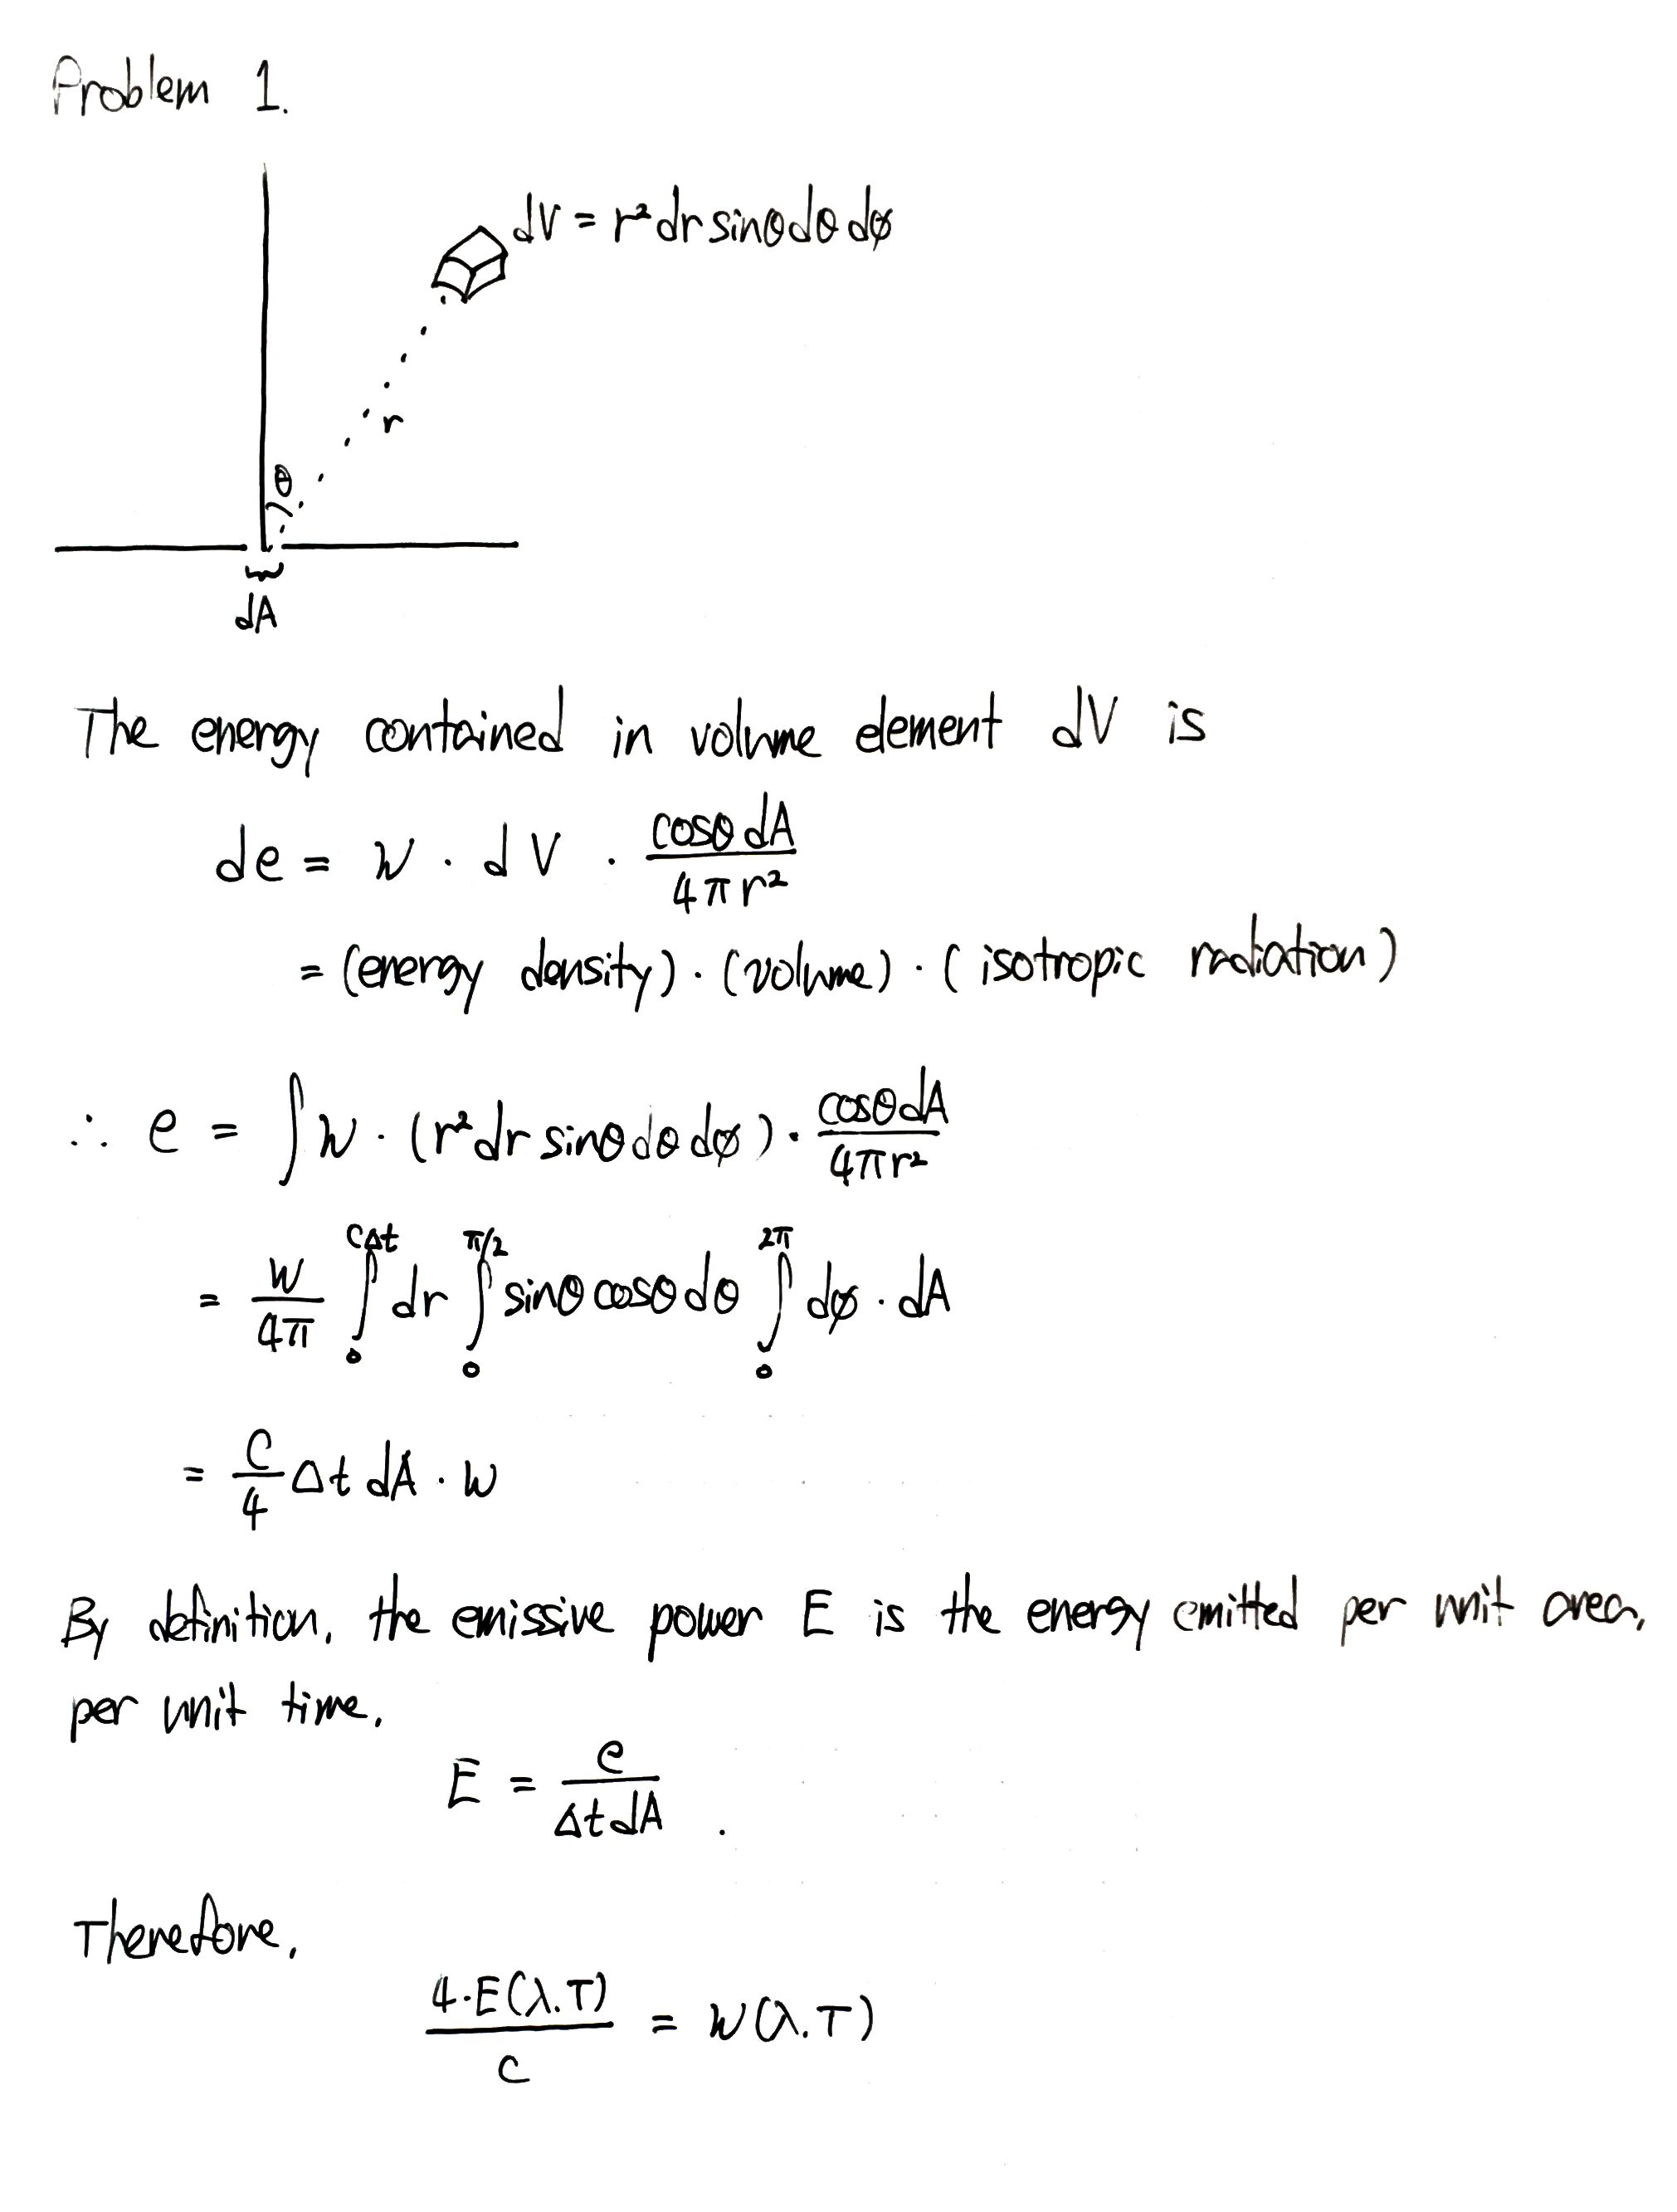 Problem 1.
dV = r²dr sinθdθdø
r
θ
dA
The energy contained in volume element dV is
de = w · dV · cosθdA / 4πr²
= (energy density) · (volume) · (isotropic radiation)
∴ e = ∫ w · (r²dr sinθdθdø) · cosθdA / 4πr²
= w/4π ∫₀^{cΔt} dr ∫₀^{π/2} sinθcosθdθ ∫₀^{2π} dø · dA
= c/4 Δt dA · w
By definition, the emissive power E is the energy emitted per unit area,
per unit time.
E = e / ΔtdA .
Therefore,
4·E(λ.T) / c = w(λ.T)